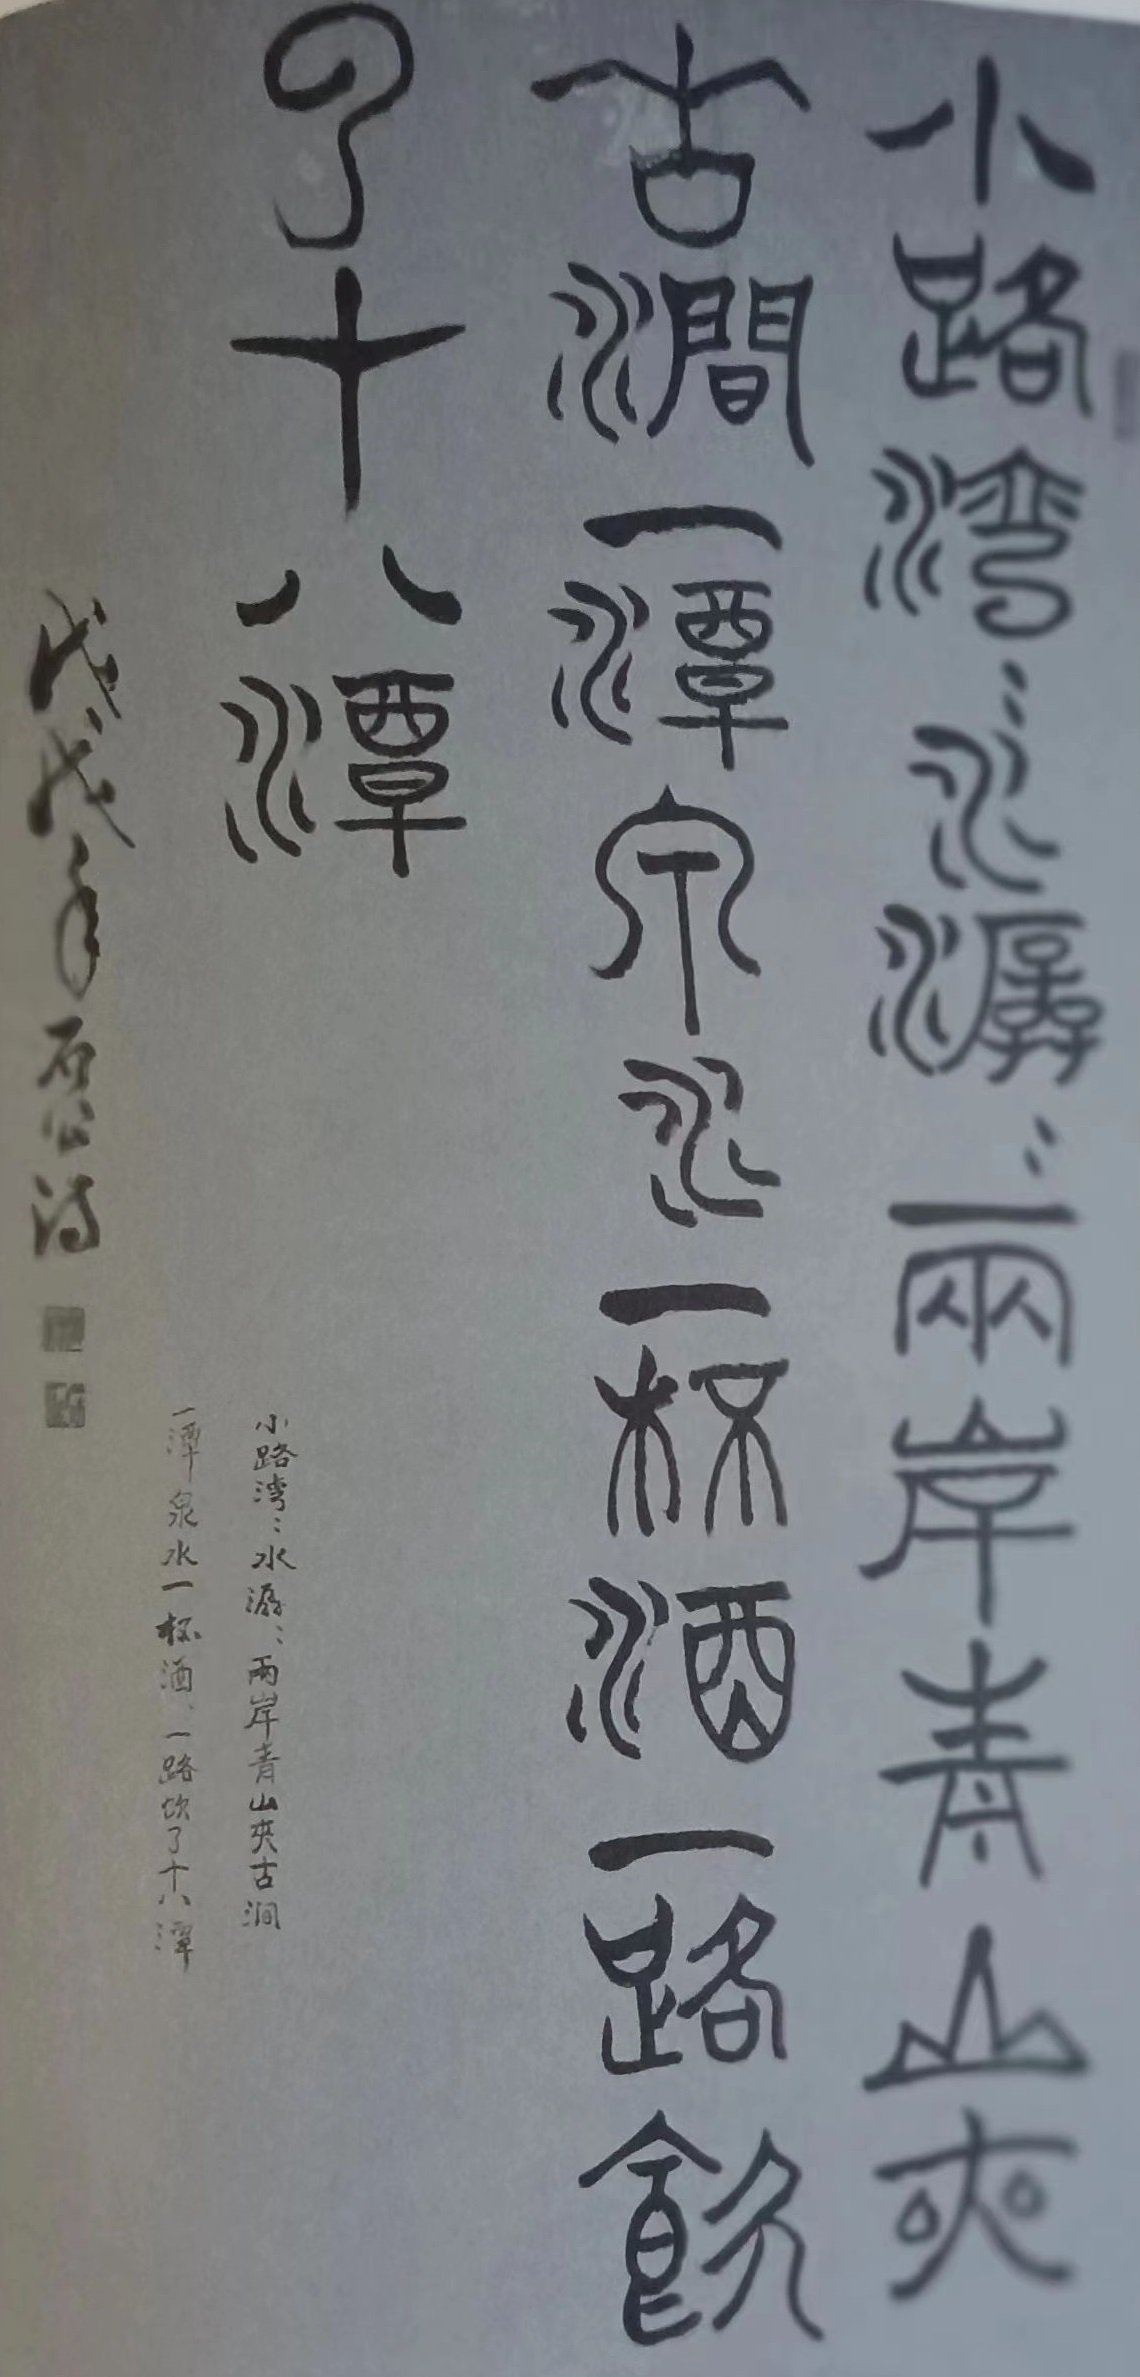 小路湾〻水潺〻兩岸青山夾
古澗一潭泉水一杯酒一路飲
了十八潭
小路湾〻水潺〻兩岸青山夾古涧
一潭泉水一杯酒、一路饮了十八潭
戊戌年 石公 诗